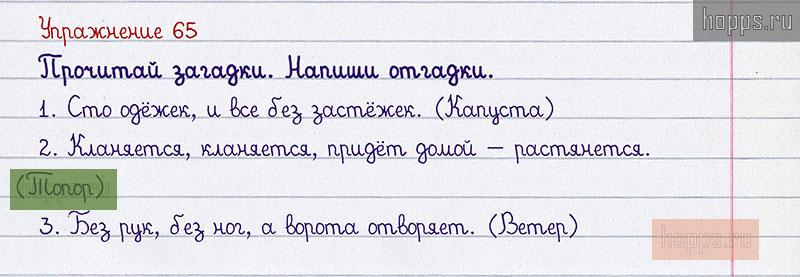 hopps.ru
Упражнение 65
Прочитай загадки. Напиши отгадки.
1. Сто одёжек, и все без застёжек. (Капуста)
2. Кланяется, кланяется, придёт домой – растянется.
(Топор)
3. Без рук, без ног, а ворота отворяет. (Ветер)
hopps.ru